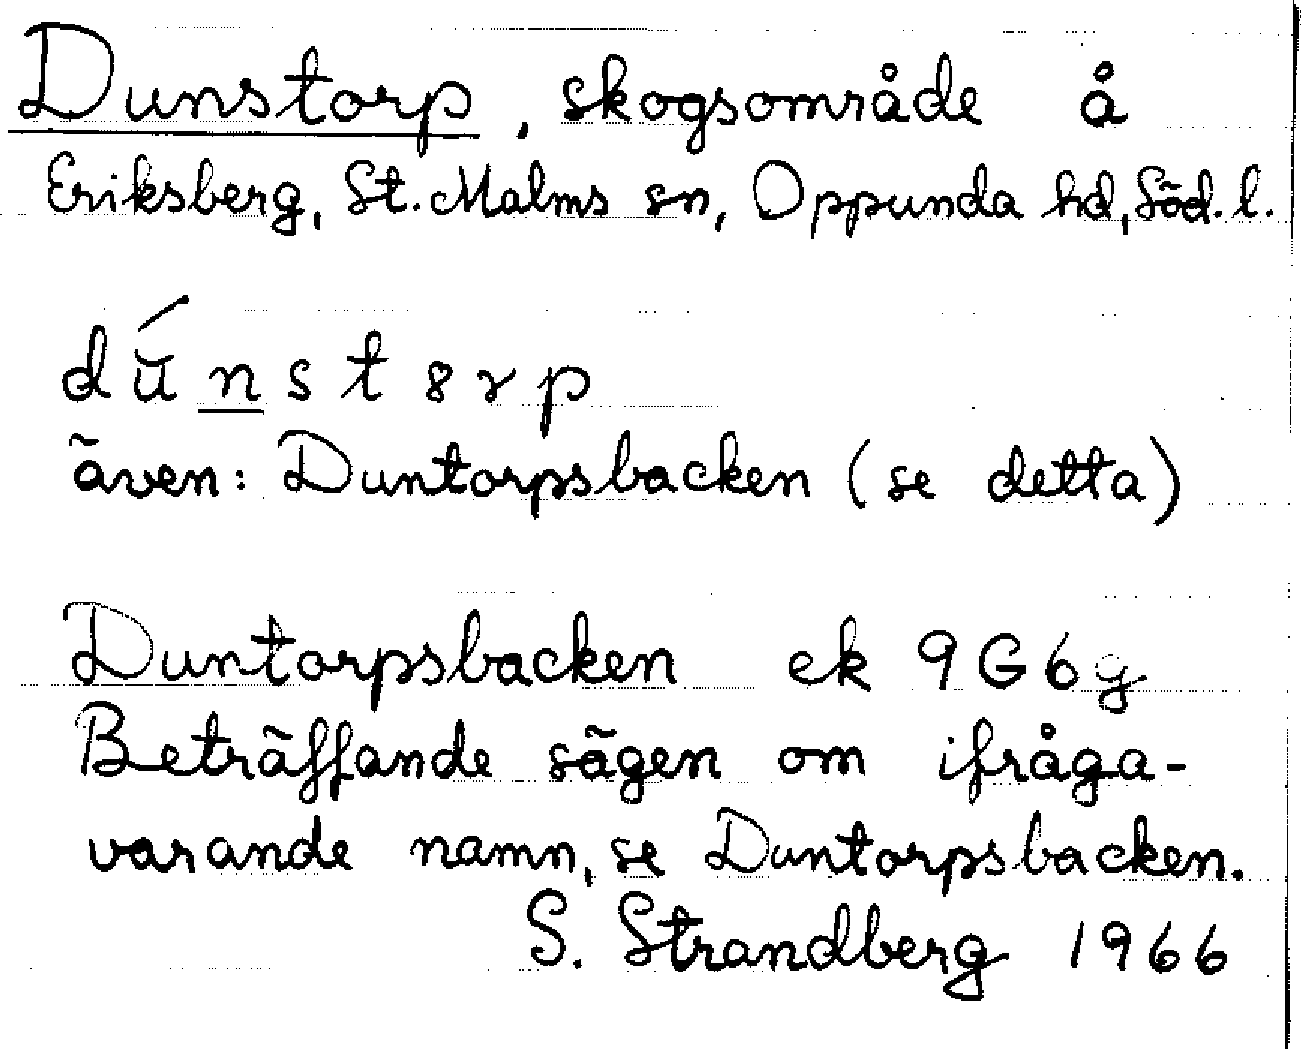 Dunstorp, skogsområde å
Eriksberg, St. Malms sn, Oppunda hd, Söd. l.
dú̄n̲st8rp
även: Duntorpsbacken (se detta)
Duntorpsbacken ek 9G6g
Beträffande sägen om ifråga-
varande namn, se Duntorpsbacken.
S. Strandberg 1966